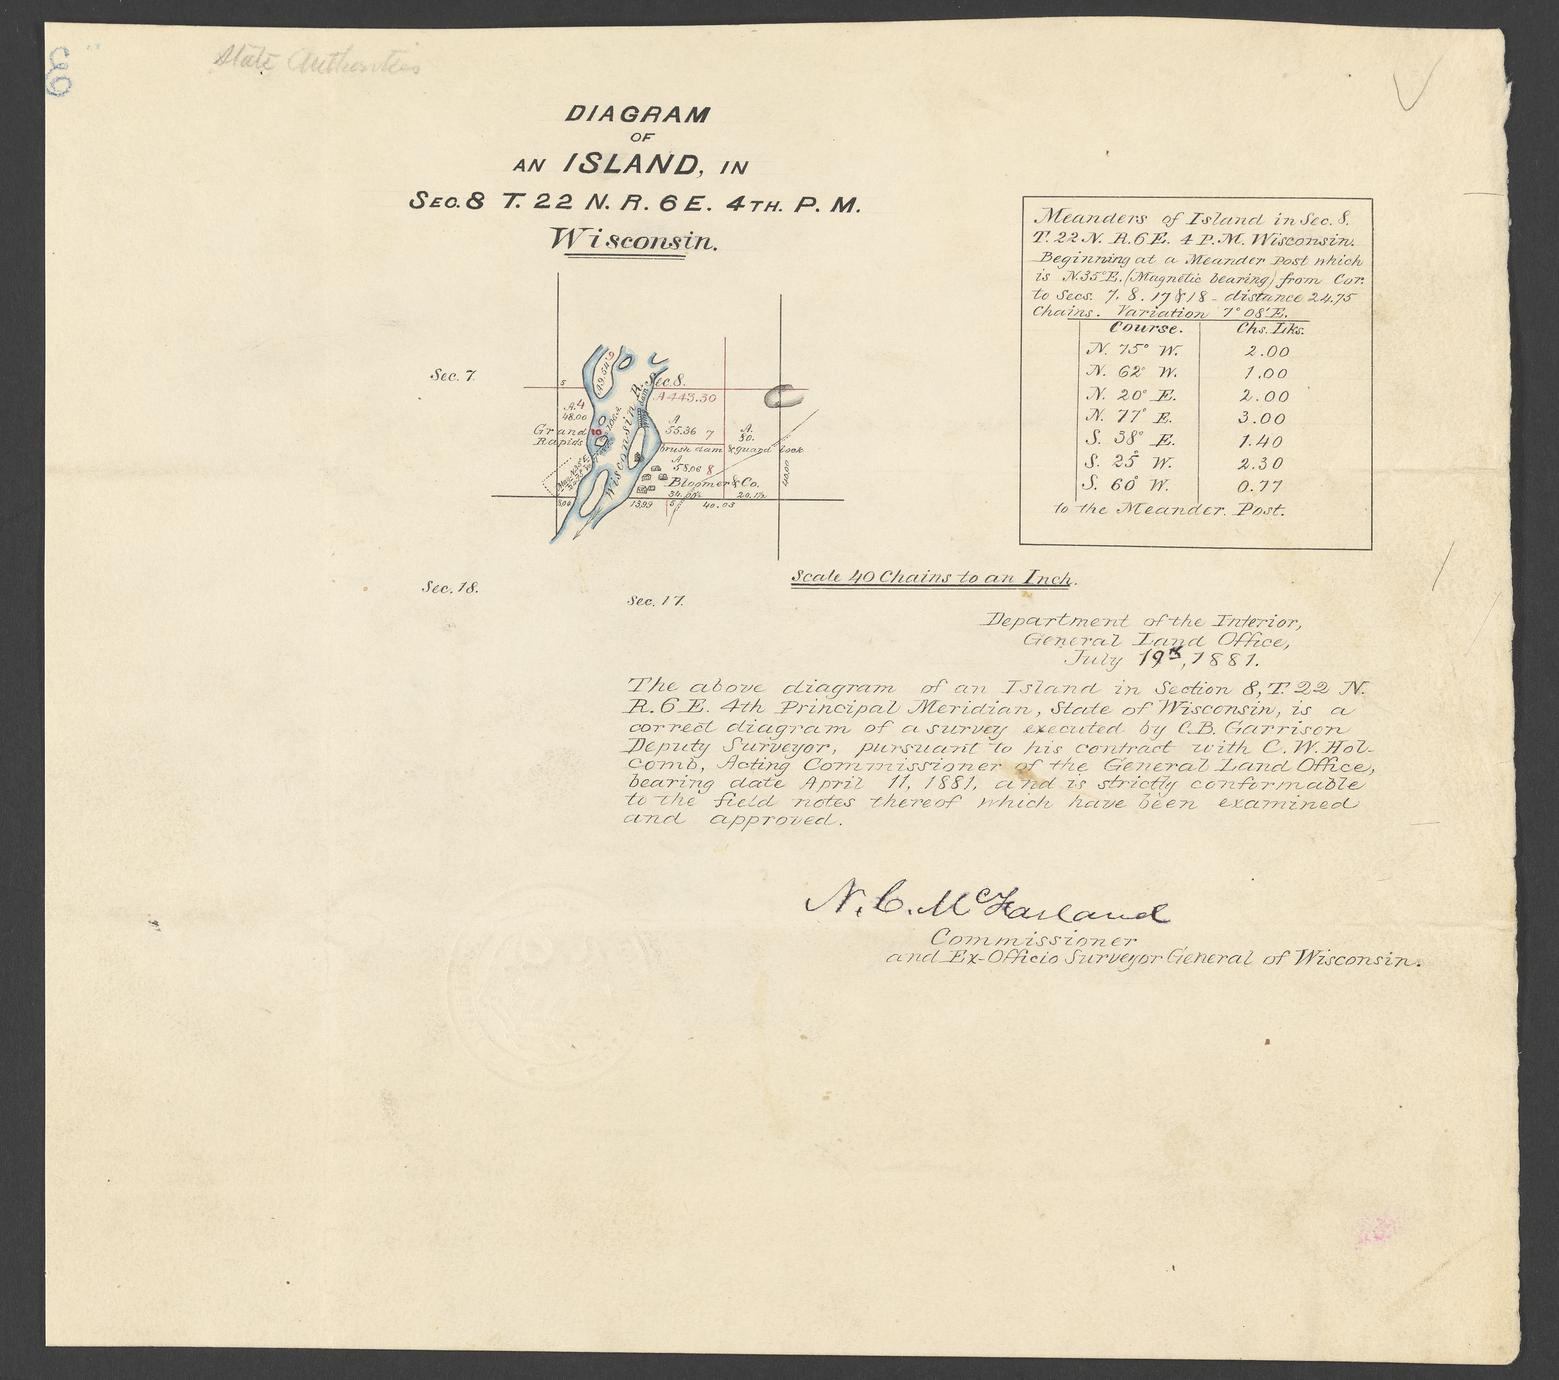 State Authorities
DIAGRAM
OF
AN ISLAND, IN
SEC. 8 T. 22 N. R. 6 E. 4TH. P. M.
Wisconsin.
Meanders of Island in Sec. 8.
T. 22 N. R. 6 E. 4 P. M. Wisconsin.
Beginning at a Meander Post which
is N. 35° E. (Magnetic bearing) from Cor.
to Secs. 7. 8. 17 & 18 - distance 24.75
Chains. Variation 7° 08' E.
Course. Chs. Lks.
N. 75° W. 2.00
N. 62° W. 1.00
N. 20° E. 2.00
N. 77° E. 3.00
S. 38° E. 1.40
S. 25° W. 2.30
S. 60° W. 0.77
to the Meander. Post.
Sec. 7.
Sec. 8.
A 443.30
49.54
9
5
A. 4
48.00
Grand
Rapids
10
Wisconsin R.
A
55.36 7
A.
80.
brush dam & guard lock
A
58.06 8
Bloomer & Co.
40.00
13.99
40.03
20.17
Sec. 18.
Sec. 17.
Scale 40 Chains to an Inch.
Department of the Interior,
General Land Office,
July 19th, 1881.
The above diagram of an Island in Section 8, T. 22 N.
R. 6 E. 4th Principal Meridian, State of Wisconsin, is a
correct diagram of a survey executed by C. B. Garrison
Deputy Surveyor, pursuant to his contract with C. W. Hol-
comb, Acting Commissioner of the General Land Office,
bearing date April 11, 1881, and is strictly conformable
to the field notes thereof which have been examined
and approved.
N. C. McFarland
Commissioner
and Ex-Officio Surveyor General of Wisconsin.